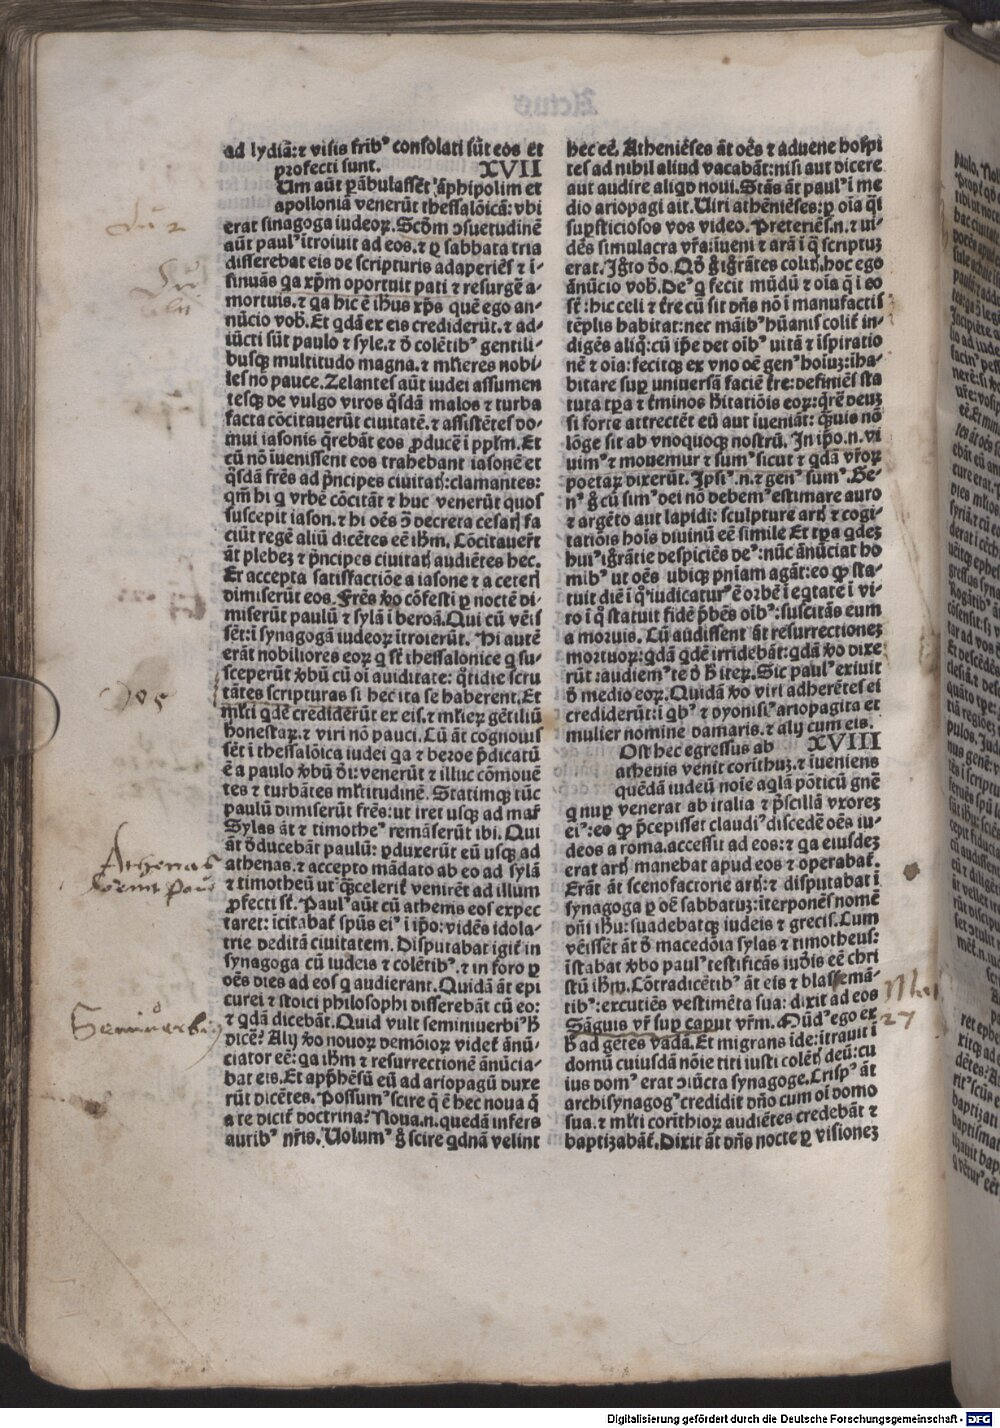 ad lydiā: ⁊ visis frib⁹ consolati sūt eos et
profecti sunt. XVII
Um aūt ꝑābulassēt āphipolim et
apolloniā venerūt thessalōicā: vbi
erat sinagoga iudeoꝝ. Scd̄m ↄsuetudinē
aūt paul⁹ ītroiuit ad eos. ⁊ ꝑ sabbata tria
disserebat eis de scripturis adaperiēs ⁊ ī-
sinuās qa xp̄m oportuit pati ⁊ resurgē a-
mortuis. ⁊ qa hic ē ih̄us xp̄s quē ego an-
nūcio vob̄. Et qdā ex eis crediderūt. ⁊ ad-
iūcti sūt paulo ⁊ syle. ⁊ d̄ colētib⁹ gentili-
busqꝫ multitudo magna. ⁊ ml̄ieres nobi-
les nō pauce. Zelantes aūt iudei assumen
tesqꝫ de vulgo viros q̄sdā malos ⁊ turba
facta cōcitauerūt ciuitatē. ⁊ assistētes do-
mui iasonis q̄rebāt eos ꝓducē ī pplm̄. Et
cū nō īuenissent eos trahebant iasonē et
q̄sdā frēs ad p̄ncipes ciuitatꝭ: clamantes:
qm̄ hi q vrbē cōcitāt ⁊ huc venerūt quos
suscepit iason. ⁊ hi oēs ↄ̄ decreta cesarꝭ fa
ciūt regē aliū dicētes eē ih̄m. Cōcitauer̄t
āt plebeꝫ ⁊ p̄ncipes ciuitatꝭ audiētes hec.
Et accepta satisfactiōe a iasone ⁊ a ceterꝭ
dimiserūt eos. Frēs ꝟo cōfesti ꝑ noctē di-
miserūt paulū ⁊ sylā ī beroā. Qui cū vēis
sēt: ī synagogā iudeoꝝ ītroierūt. Hi autē
erāt nobiliores eoꝝ q sūt thessalonice q su-
sceperūt ꝟbū cū oī auiditate: q̄tidie scru
tātes scripturas si hec ita se haberent. Et
ml̄ti qdē crediderūt ex eis. ⁊ ml̄ieꝝ gētiliū
honestaꝝ. ⁊ viri nō pauci. Cū āt cognouis
sēt ī thessalōica iudei qa ⁊ beroe p̄dicatū
ē a paulo ꝟbū dī: venerūt ⁊ illuc cōmouē
tes ⁊ turbātes ml̄titudinē. Statimqꝫ tūc
paulū dimiserūt frēs: ut iret usqꝫ ad mar̄
Sylas āt ⁊ timothe⁹ remāserūt ibi. Qui
āt d̄ducebāt paulū: ꝑduxerūt eū usqꝫ ad
athenas. ⁊ accepto mādato ab eo ad sylā
⁊ timotheū ut q̄ꝫcelerit̄ venirēt ad illum
ꝓfecti sūt. Paul⁹ aūt cū athenis eos expec
taret: īcitabat̄ spūs ei⁹ ī ip̄o: vidēs idola-
trie deditā ciuitatem. Disputabat igit̄ in
synagoga cū iudeis ⁊ colētib⁹. ⁊ in foro ꝑ
oēs dies ad eos q audierant. Quidā āt epi
curei ⁊ stoici philosophi disserebāt cū eo:
⁊ qdā dicebāt. Quid vult seminiuerbi⁹ h̄
dicē? Alij ꝟo nouoꝝ demōioꝝ videt̄ ānū-
ciator eē: qa ih̄m ⁊ resurrectionē ānūcia-
bat eis. Et app̄hēsū eū ad ariopagū duxe
rūt dicētes. Possum⁹ scire q̄ ē hec noua q̄
a te dicit̄ doctrina? Noua .n. quedā infers
aurib⁹ nr̄is. Uolum⁹ g̊ scire qdnā velint
hec eē. Atheniēses āt oēs ⁊ aduene hospi
tes ad nihil aliud vacabāt: nisi aut dicere
aut audire aliqd noui. Stās āt paul⁹ ī me
dio ariopagi ait. Uiri athēniēses: ꝑ oīa qͥi
suꝑsticiosos vos video. Preteriēs .n. ⁊ ui-
dēs simulacra vr̄a: īueni ⁊ arā ī q̄ scriptuꝫ
erat. Ig̊to deo. Qd̄ g̊ ig̊rātes colitꝭ, hoc ego
ānūcio vob̄. De⁹ q fecit mūdū ⁊ oīa q̄ ī eo
sūt: hic celi ⁊ t̄re cū sit dn̄s nō ī manufactis
tēplis habitat: nec māib⁹ hūanis colit̄ in-
digēs aliq̄: cū ip̄e det oīb⁹ uitā ⁊ īspiratio
nē ⁊ oīa: fecitqꝫ ex vno oē gen⁹ hoīuꝫ: īha-
bitare suꝑ uniuersā faciē t̄re: definiēs sta
tuta tꝑa ⁊ t̄minos h̄itatiōis eoꝝ: q̄rē deuꝫ
si forte attrectēt eū aut īueniāt: q̄ꝫuis nō
lōge sit ab vnoquoqꝫ nostrū. In ip̄o .n. vi
uim⁹ ⁊ mouemur ⁊ sum⁹ sicut ⁊ qdā vr̄oꝝ
poetaꝝ dixerūt. Ipsi⁹ .n. ⁊ gen⁹ sum⁹. Ge-
n⁹ g̊ cū sim⁹ dei nō debem⁹ estimare auro
⁊ argēto aut lapidi: sculpture artꝭ ⁊ cogi-
tatiōis hoīs diuinū eē simile Et tꝑa qdeꝫ
hui⁹ ig̊rātie despiciēs de⁹: nūc ānūciat ho
mib⁹ ut oēs ubiqꝫ pn̄iam agāt: eo ꝙ sta-
tuit diē ī q̄ iudicatur⁹ ē orbē ī eqtate ī vi-
ro ī q̄ statuit fidē p̄bēs oīb⁹: suscitās eum
a mortuis. Cū audissent āt resurrectioneꝫ
mortuoꝝ: qdā qdē irridebāt: qdā ꝟo dixe
rūt: audiem⁹ te d̄ h̄ iteꝝ. Sic paul⁹ exiuit
d̄ medio eoꝝ. Quidā ꝟo viri adherētes ei
crediderūt: ī qb⁹ ⁊ dyonisi⁹ ariopagita et
mulier nomine damaris. ⁊ alij cum eis.
Ost hec egressus ab XVIII
athenis venit corīthuꝫ. ⁊ īueniens
quēdā iudeū noīe aqlā pōticū gnē
q nuꝑ venerat ab italia ⁊ p̄scillā vxoreꝫ
ei⁹: eo ꝙ p̄cepisset claudi⁹ discedē oēs iu-
deos a roma. accessit ad eos: ⁊ qa eiusdeꝫ
erat artꝭ manebat apud eos ⁊ operabat̄.
Erāt āt scenofactorie artꝭ: ⁊ disputabat ī
synagoga ꝑ oē sabbatuꝫ: īterponēs nomē
dn̄i ih̄u: suadebatqꝫ iudeis ⁊ grecis. Cum
vēissēt āt d̄ macedōia sylas ⁊ timotheus:
īstabat ꝟbo paul⁹ testificās iud̄is eē chri
stū ih̄m. Cōtradicētib⁹ āt eis ⁊ blasfemā-
tib⁹: excutiēs vestimēta sua: dixit ad eos
Sāguis vr̄ suꝑ caput vr̄m. Mūd⁹ ego ex
h̄ ad gētes vadā. Et migrans īde: ītrauit ī
domū cuiusdā nōie titi iusti colētꝭ deū: cu
ius dom⁹ erat ↄiūcta synagoge. Crisp⁹ āt
archisynagog⁹ credidit dn̄o cum oī domo
sua. ⁊ ml̄ti corīthioꝝ audiētes credebāt ⁊
baptizabāt̄. Dixit āt dn̄s nocte ꝑ visioneꝫ
Athenas
venit pau
Seminuerbiꝰ
27
Digitalisierung gefördert durch die Deutsche Forschungsgemeinschaft - DFG